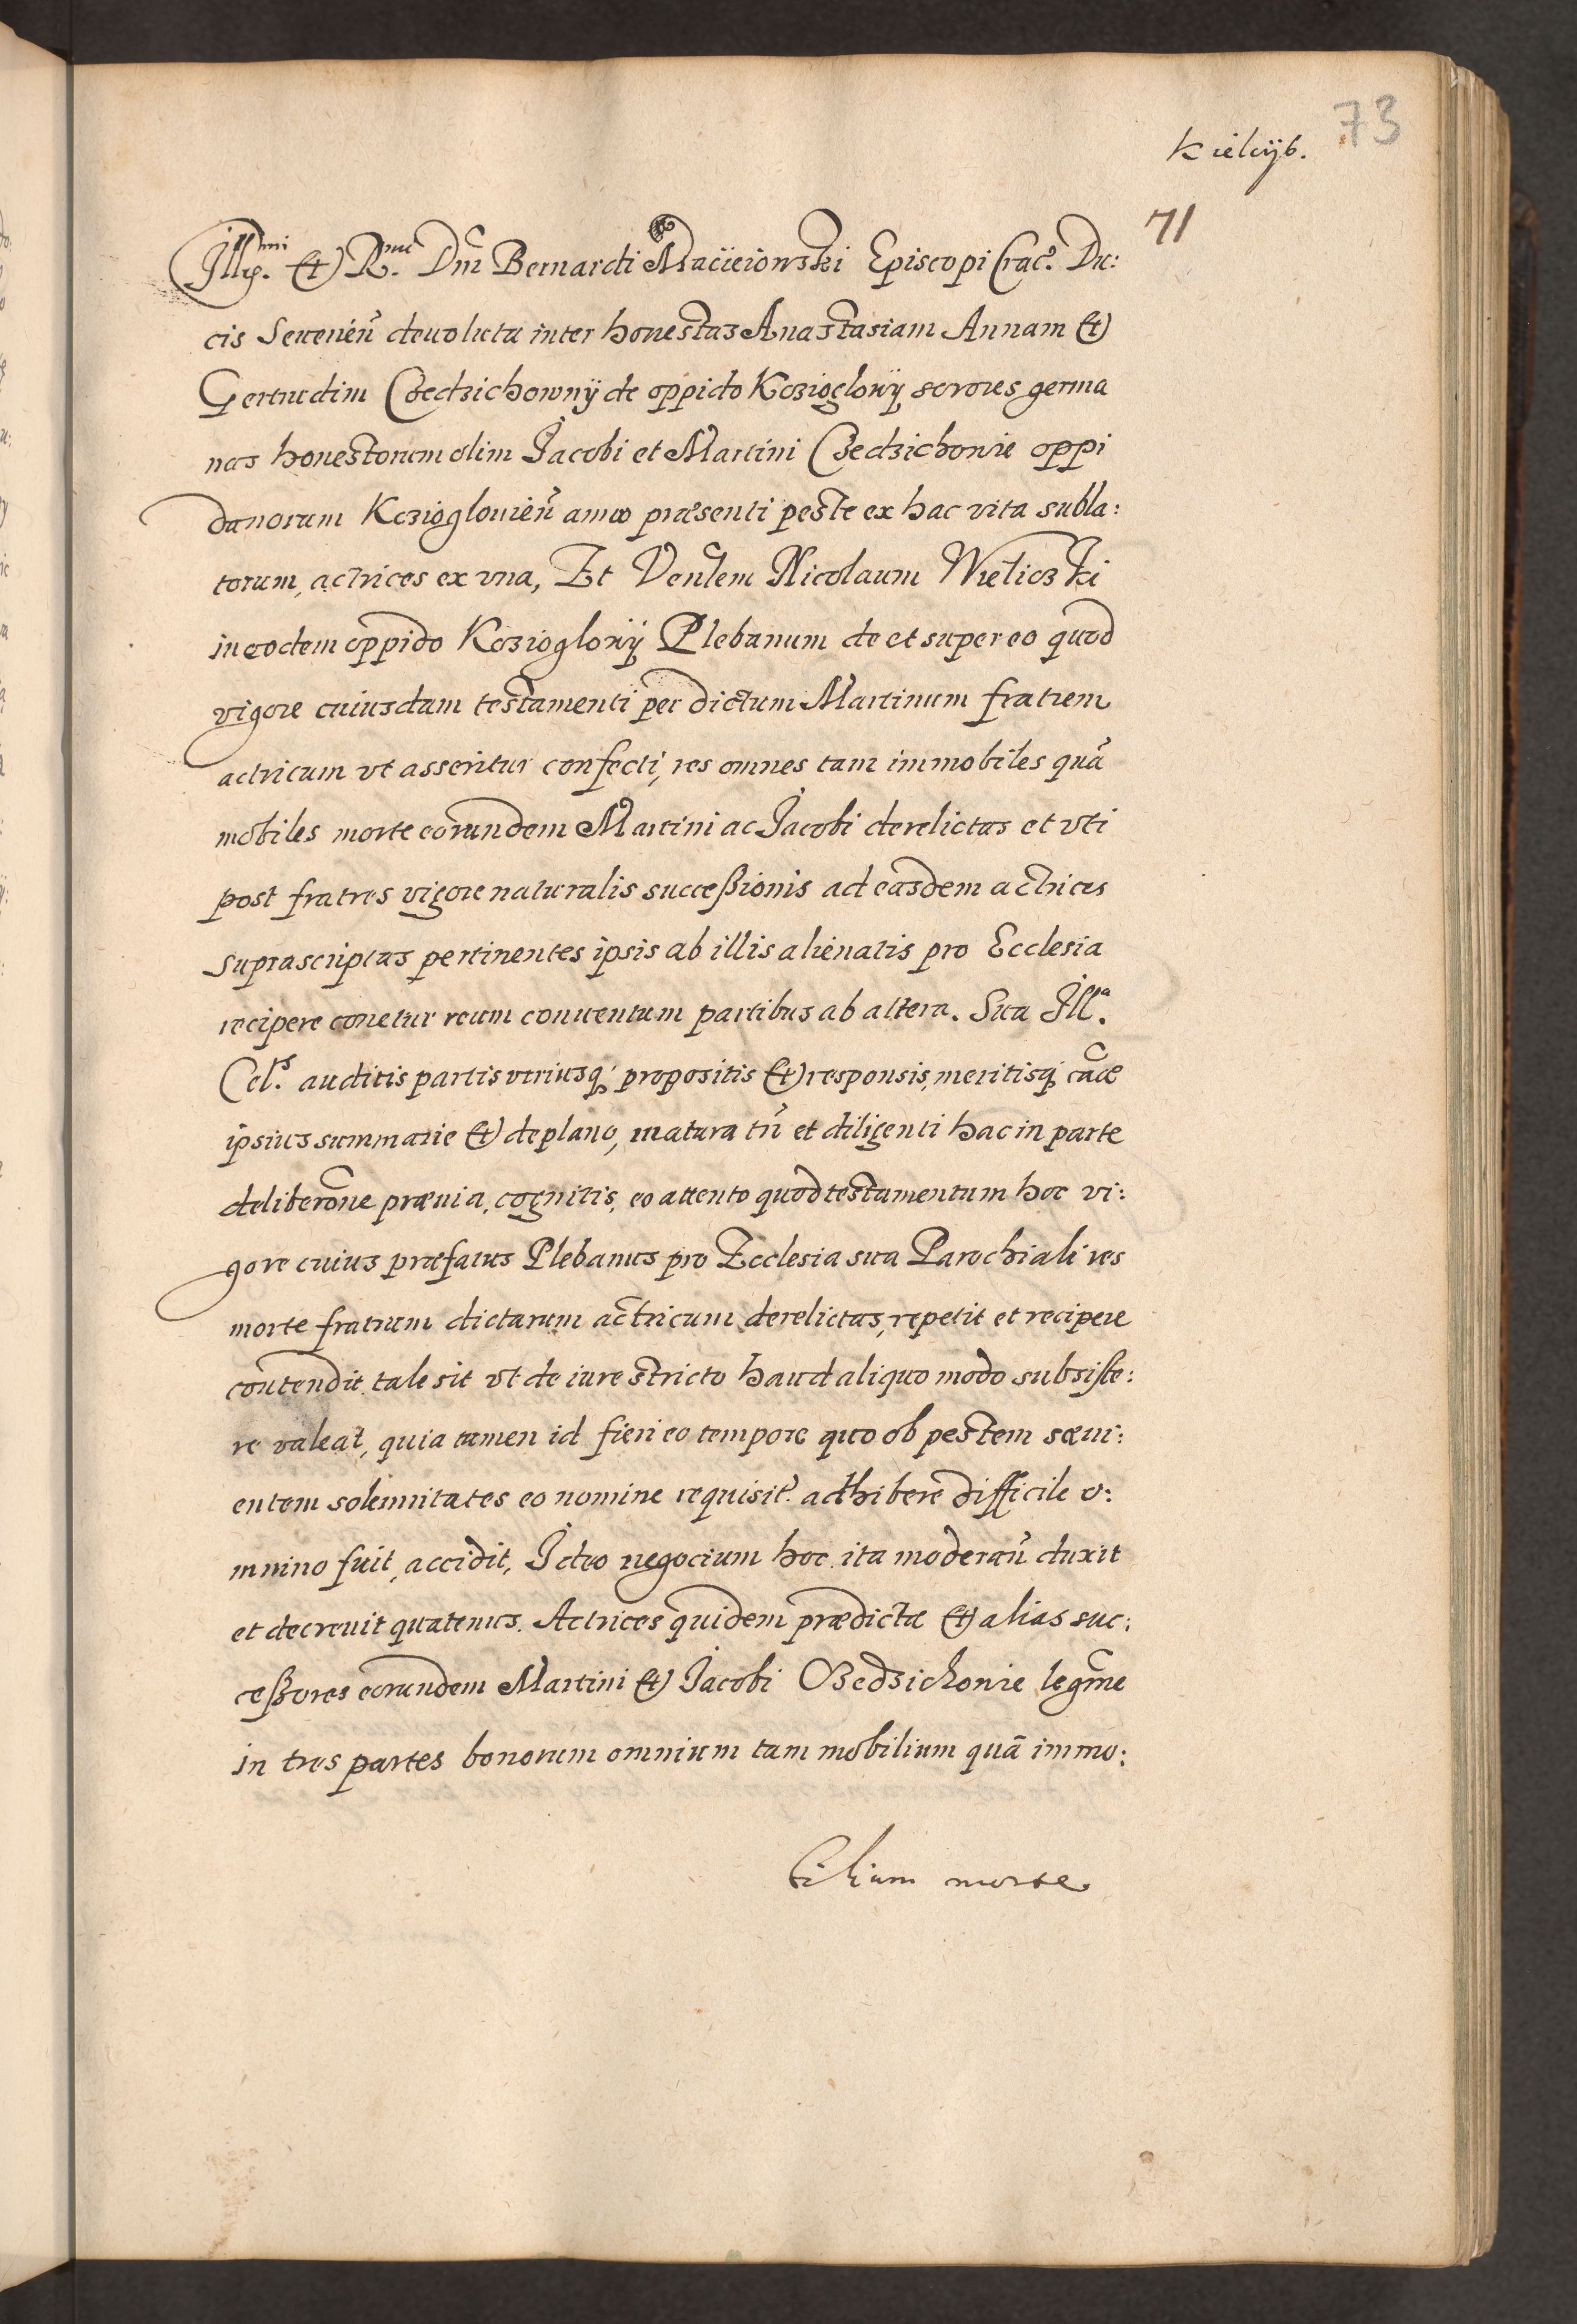 73
Kielcijs.
71
Illus.mi et R.mi Dni Bernardi Macieiowski Episcopi Crac. Du:
cis Seuerien deuoluta inter honestas Anastasiam Annam et
Gertrudim Czedzichowny de oppido Kozioglowÿ sorores germa
nas honestorum olim Jacobi et Martini Czedzichowie oppi
danorum Kozioglouien anno præsenti peste ex hac vita subla:
torum, actrices ex vna, Et Venlem Nicolaum Wieliczki
in eodem oppido Kozioglowÿ Plebanum de et super eo quod
vigore cuiusdam testamenti per dictum Martinum fratrem
actricum vt asseritur confecti, res omnes tam immobiles quã
mobiles morte eorundem Martini ac Jacobi derelictas et vti
post fratres vigore naturalis successionis ad easdem actrices
suprascriptas pertinentes ipsis ab illis alienatis pro Ecclesia
recipere conetur reum conuentum partibus ab altera. Sua Ill.a
Cel.s auditis partis vtriusq; propositis et responsis, meritisq; cãæ
ipsius summarie et de plano, matura tñ et diligenti hac in parte
deliberõne præuia, cognitis, eo attento quod testamentum hoc vi:
gore cuius præfatus Plebanus pro Ecclesia sua Parochiali res
morte fratrum dictarum actricum derelictas, repetit et recipere
contendit tale sit vt de iure stricto haud aliquo modo subsiste:
re valeat, quia tamen id fieri eo tempore quo ob pestem sæui:
entem solennitates eo nomine requisit. adhibere difficile o:
mnino fuit, accidit, Ideo negocium hoc ita moderañ duxit
et decreuit quatenus. Actrices quidem prædictæ et alias suc:
cessores eorundem Martini et Jacobi Czedzichowie legme
in tres partes bonorum omnium tam mobilium quã immo:
bilium morte